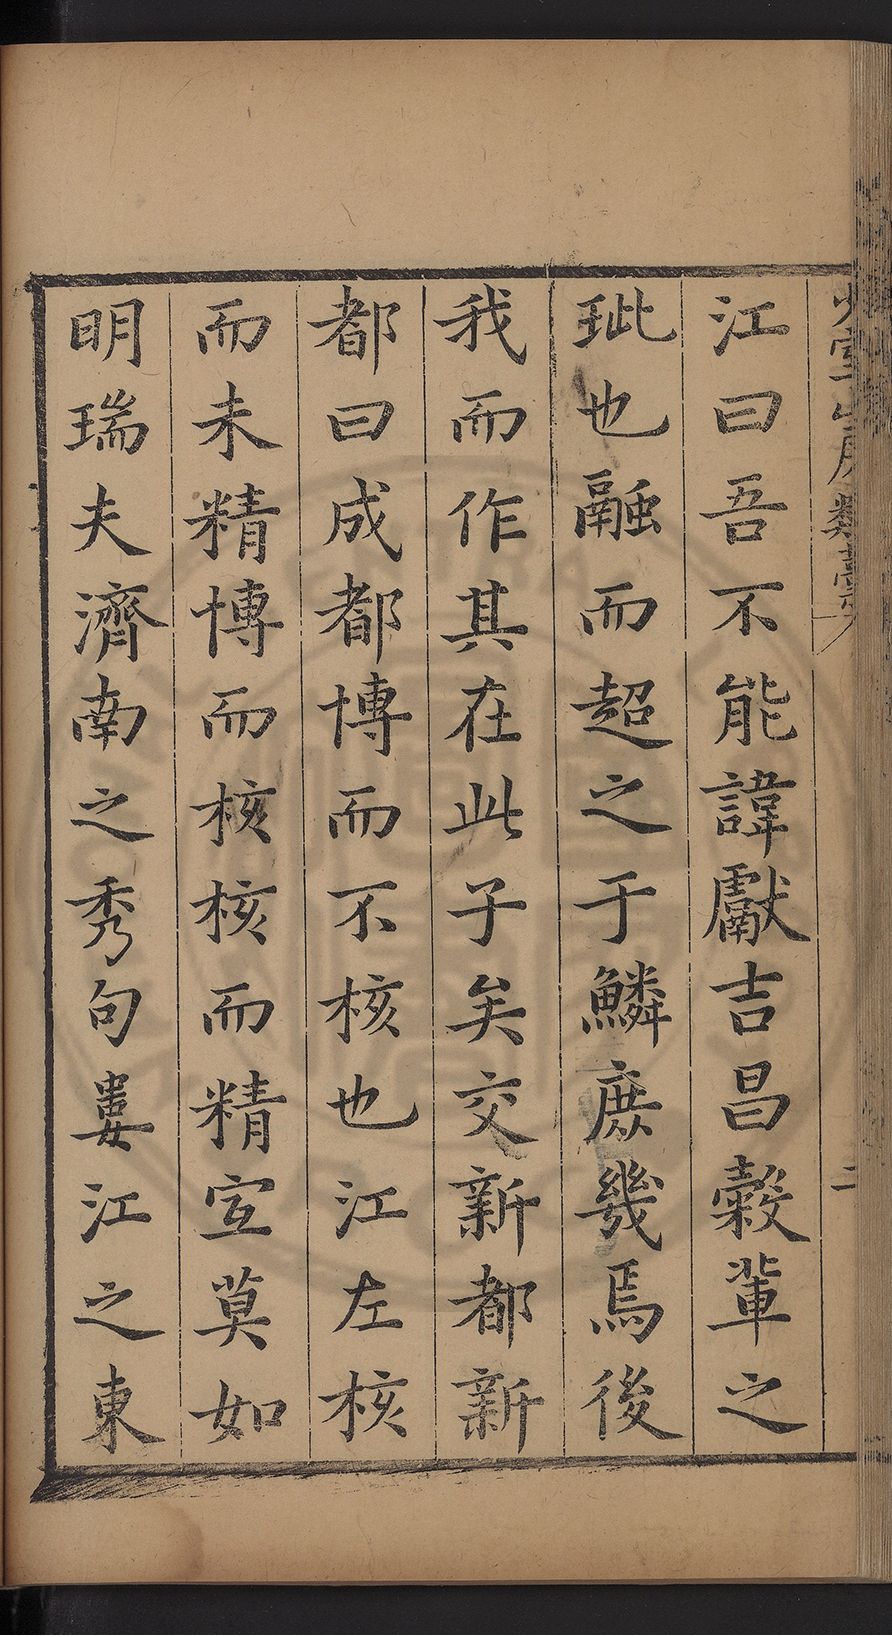 江曰吾不能諱獻吉昌穀軰之
玼也融而超之于鱗庶幾焉後
我而作其在此子矣交新都新
都曰成都博而不核也江左核
而未精博而核核而精宐莫如
明瑞夫濟南之秀句婁江之東
少室山房類藁
二